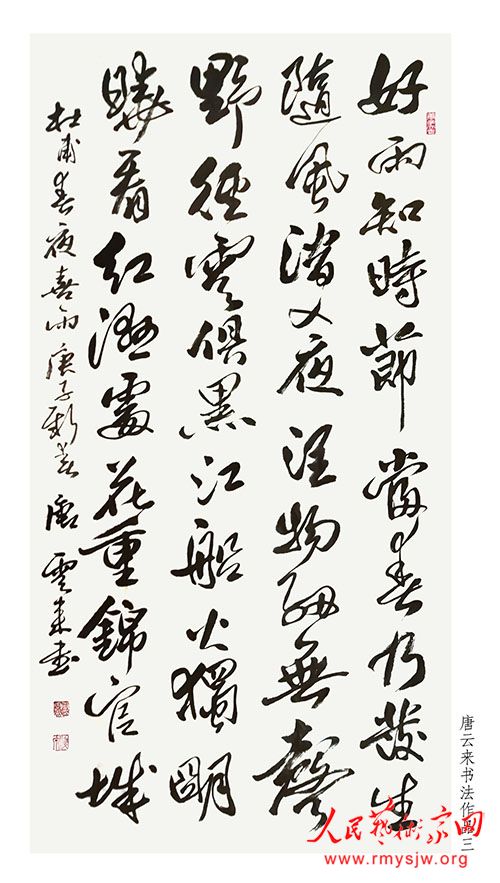 好雨知時節當春乃發生
隨風潛入夜潤物細無聲
野徑雲俱黑江船火獨明
曉看紅濕處花重錦官城
杜甫春夜喜雨庚子新春唐雲来書
唐云来书法作品三
人民艺术家网
www.rmysjw.org